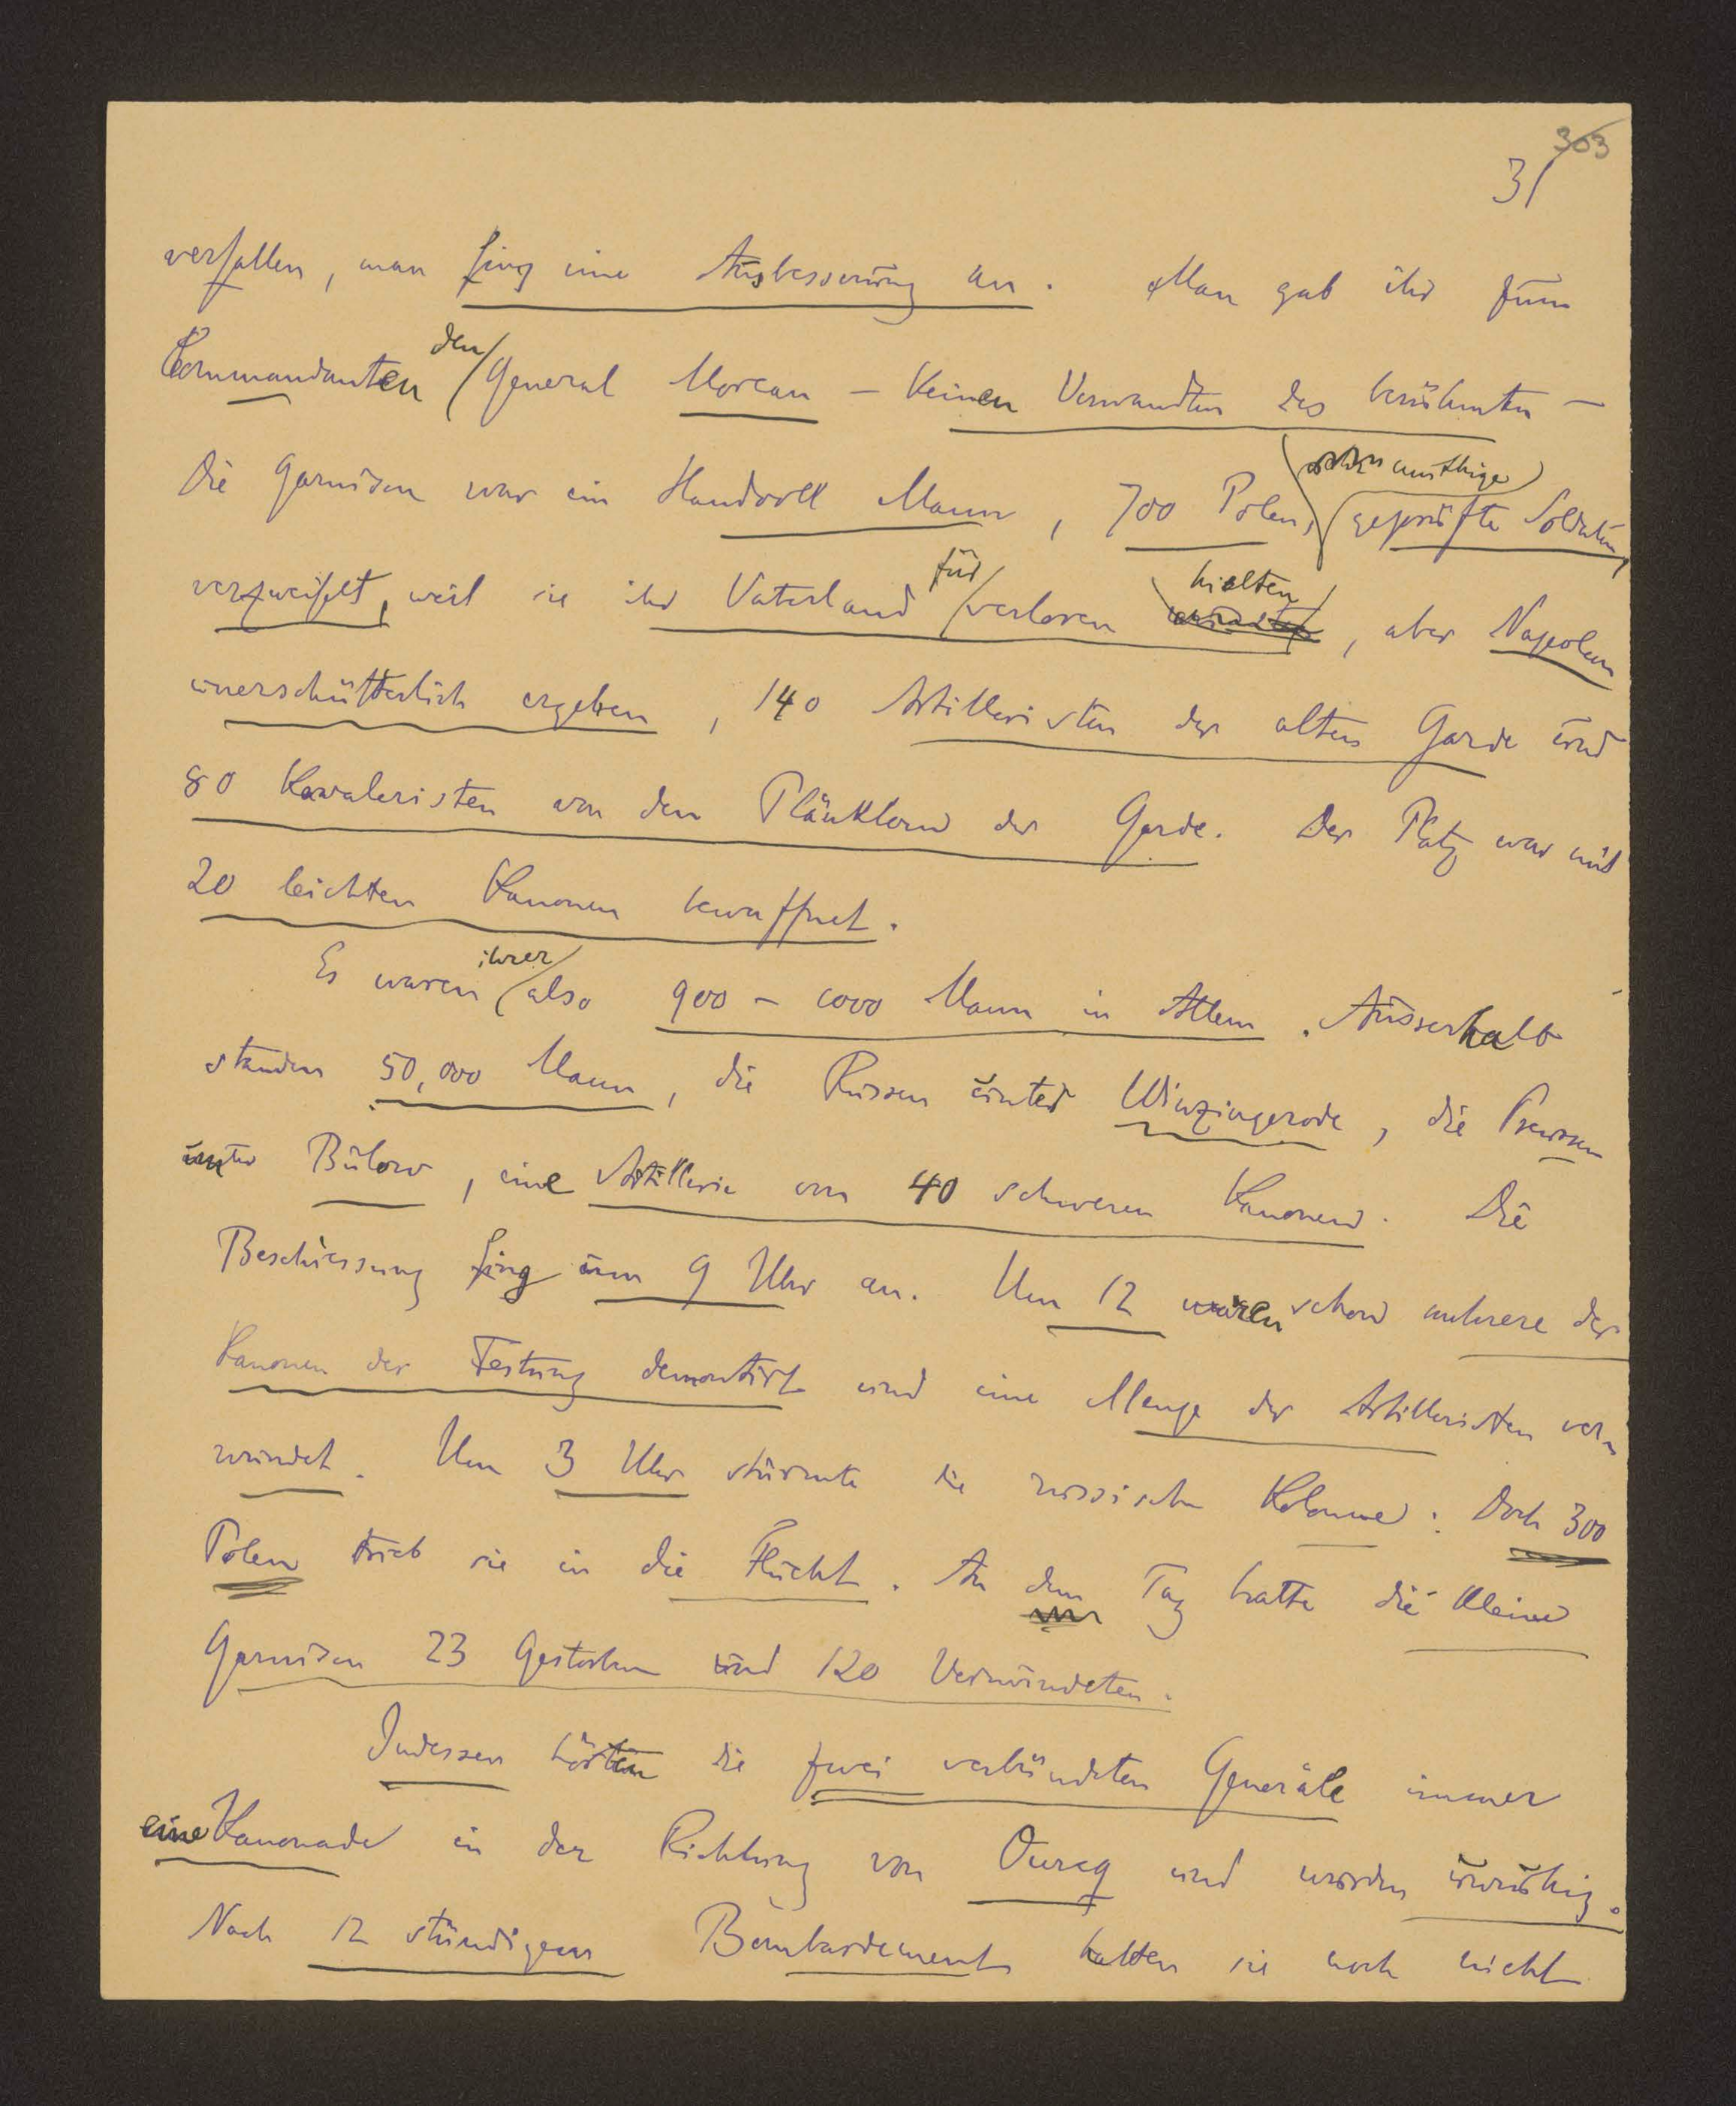 303
31
verfallen, man fing eine Ausbesserung an. Man gab ihr zum
Commandanten den General Moreau – keinen Verwandten des berühmten –
Die Garnison war ein Handvoll Mann, 700 Polen, muthige geprüfte Soldaten,
verzweifelt, weil sie ihr Vaterland für verloren hielten, aber Napoleon
unerschütterlich ergeben, 140 Artilleristen der alten Garde und
80 Kavaleristen von den Plänklern der Garde. Der Platz war mit
20 leichten Kanonen bewaffnet.
Es waren ihrer also 900 – 1000 Mann in Allem. Ausserhalb
standen 50,000 Mann, die Russen unter Winzingerode, die Preussen
unter Bülow, eine Artillerie von 40 schweren Kanonen. Die
Beschiessung fing um 9 Uhr an. Um 12 waren schon mehrere der
Kanonen der Festung demontirt und eine Menge der Artilleristen ver-
wundet. Um 3 Uhr stürmte die russische Kolonne: Doch 300
Polen trieb sie in die Flucht. An dem Tag hatte die kleine
Garnison 23 Gestorben und 120 Verwundeten.
Indessen hörten die zwei verbündeten Generäle immer
eine Kanonade in der Richtung von Ourcq und wurden unruhig.
Nach 12 stündigem Bombardement hatten sie noch nicht